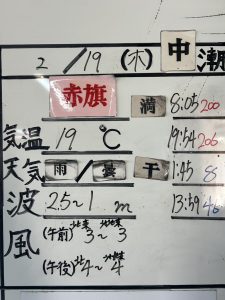 2/19 (木) 中潮
赤旗 満 8:05 200
気温 19℃ 19:54 206
天気 雨/曇 干 1:45 8
波 2.5~1 m 13:59 46
風 (午前) 北東3~北北東3
(午後) 北4~北北東4